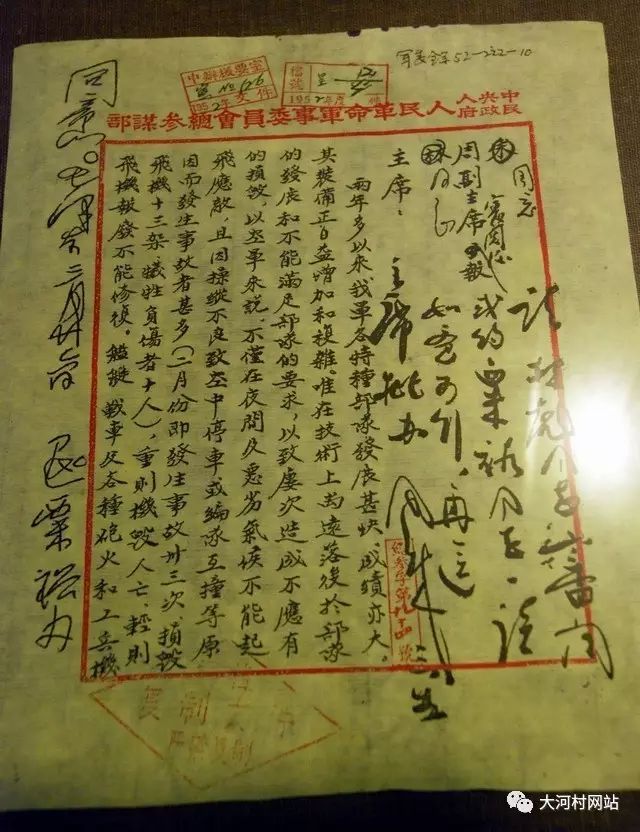 52-222-10
中央人民政府人民革命軍事委員會總參謀部
同意
周副主席
或约粟裕同志一談
如可行，再送
主席批办
周恩来
主席：
兩年多以來我軍各特種部隊發展甚快、成績亦大。
其裝備正日益增加和複雜。唯在技術上尚遠落後於部隊
的發展和不能滿足部隊的要求，以致屢次造成不應有
的損毀。以空軍來說，不僅在夜間及惡劣氣候不能起
飛應敵，且因操縱不良致空中停車或編隊互撞等原
因而發生事故者甚多（二月份即發生事故卅三次、損毀
飛機十三架、犧牲負傷者十人），重則機毀人亡、輕則
飛機報廢不能修復。艦艇、戰車及各種砲火和工兵機
同意。毛澤东 三月
退粟裕办
大河村网站